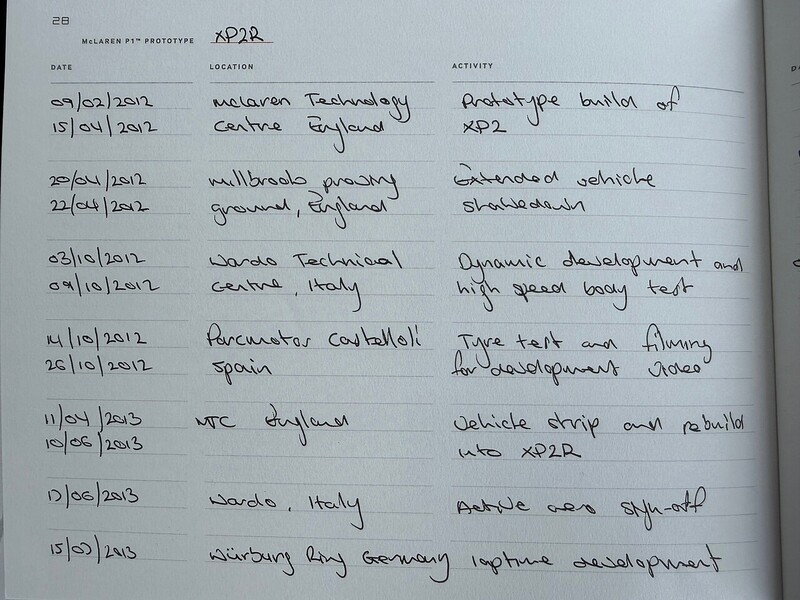 28
McLAREN P1™ PROTOTYPE XP2R
DATE LOCATION ACTIVITY
09/02/2012 mclaren Technology Prototype build of
15/04/2012 Centre England XP2
20/04/2012 millbrook proving Extended vehicle
22/04/2012 ground, England shakedown
03/10/2012 Nardo Technical Dynamic development and
09/10/2012 Centre, Italy high speed body test
14/10/2012 Parcmotor Castelloli Tyre test and filming
26/10/2012 Spain for development video
11/04/2013 MTC England Vehicle strip and rebuild
10/06/2013 into XP2R
13/06/2013 Nardo, Italy Active aero sign-off
15/07/2013 Nürburg Ring Germany laptime development